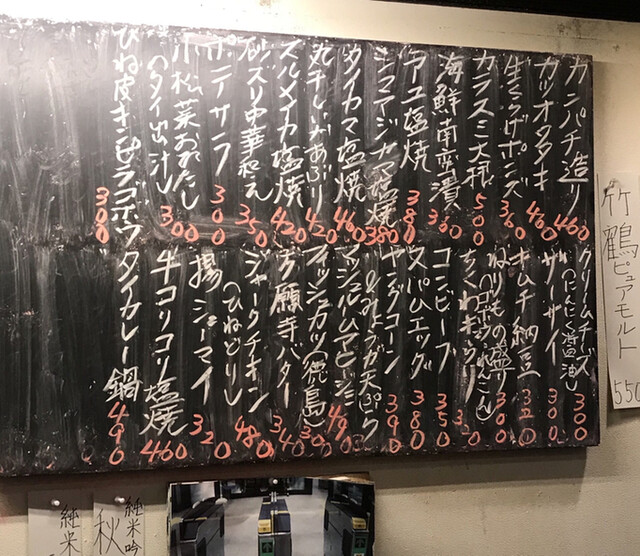 カンパチ造り 460
カツオタタキ 460
生くらげポンズ 360
カラスミ大根 500
海鮮南蛮漬 360
アユ塩焼 380
シマアジカマ塩焼 380
タイカマ塩焼 460
丸干しいかあぶり 420
スルメイカ塩焼 420
砂スリ中華和え 350
ポテサラ 300
小松菜おひたし
(タイ出汁) 300
ひね皮キンピラゴボウ 300
クリームチーズ
(にんにく醤油) 300
ザーサイ 300
キムチ納豆 320
ねりもの盛り
(ゴボウ、れんこん) 300
ちくわきゅうり 320
コンビーフ 350
スパムエッグ 380
ヤングコーン
&みょうが天ぷら 390
マッシュルームアヒージョ 490
フィッシュカツ(徳島) 300
ジャークチキン
(ひねどり) 480
揚シューマイ 320
牛コリコリ塩焼 460
タイカレー鍋 490
竹鶴
ピュアモルト
550
純米吟
秋
純米